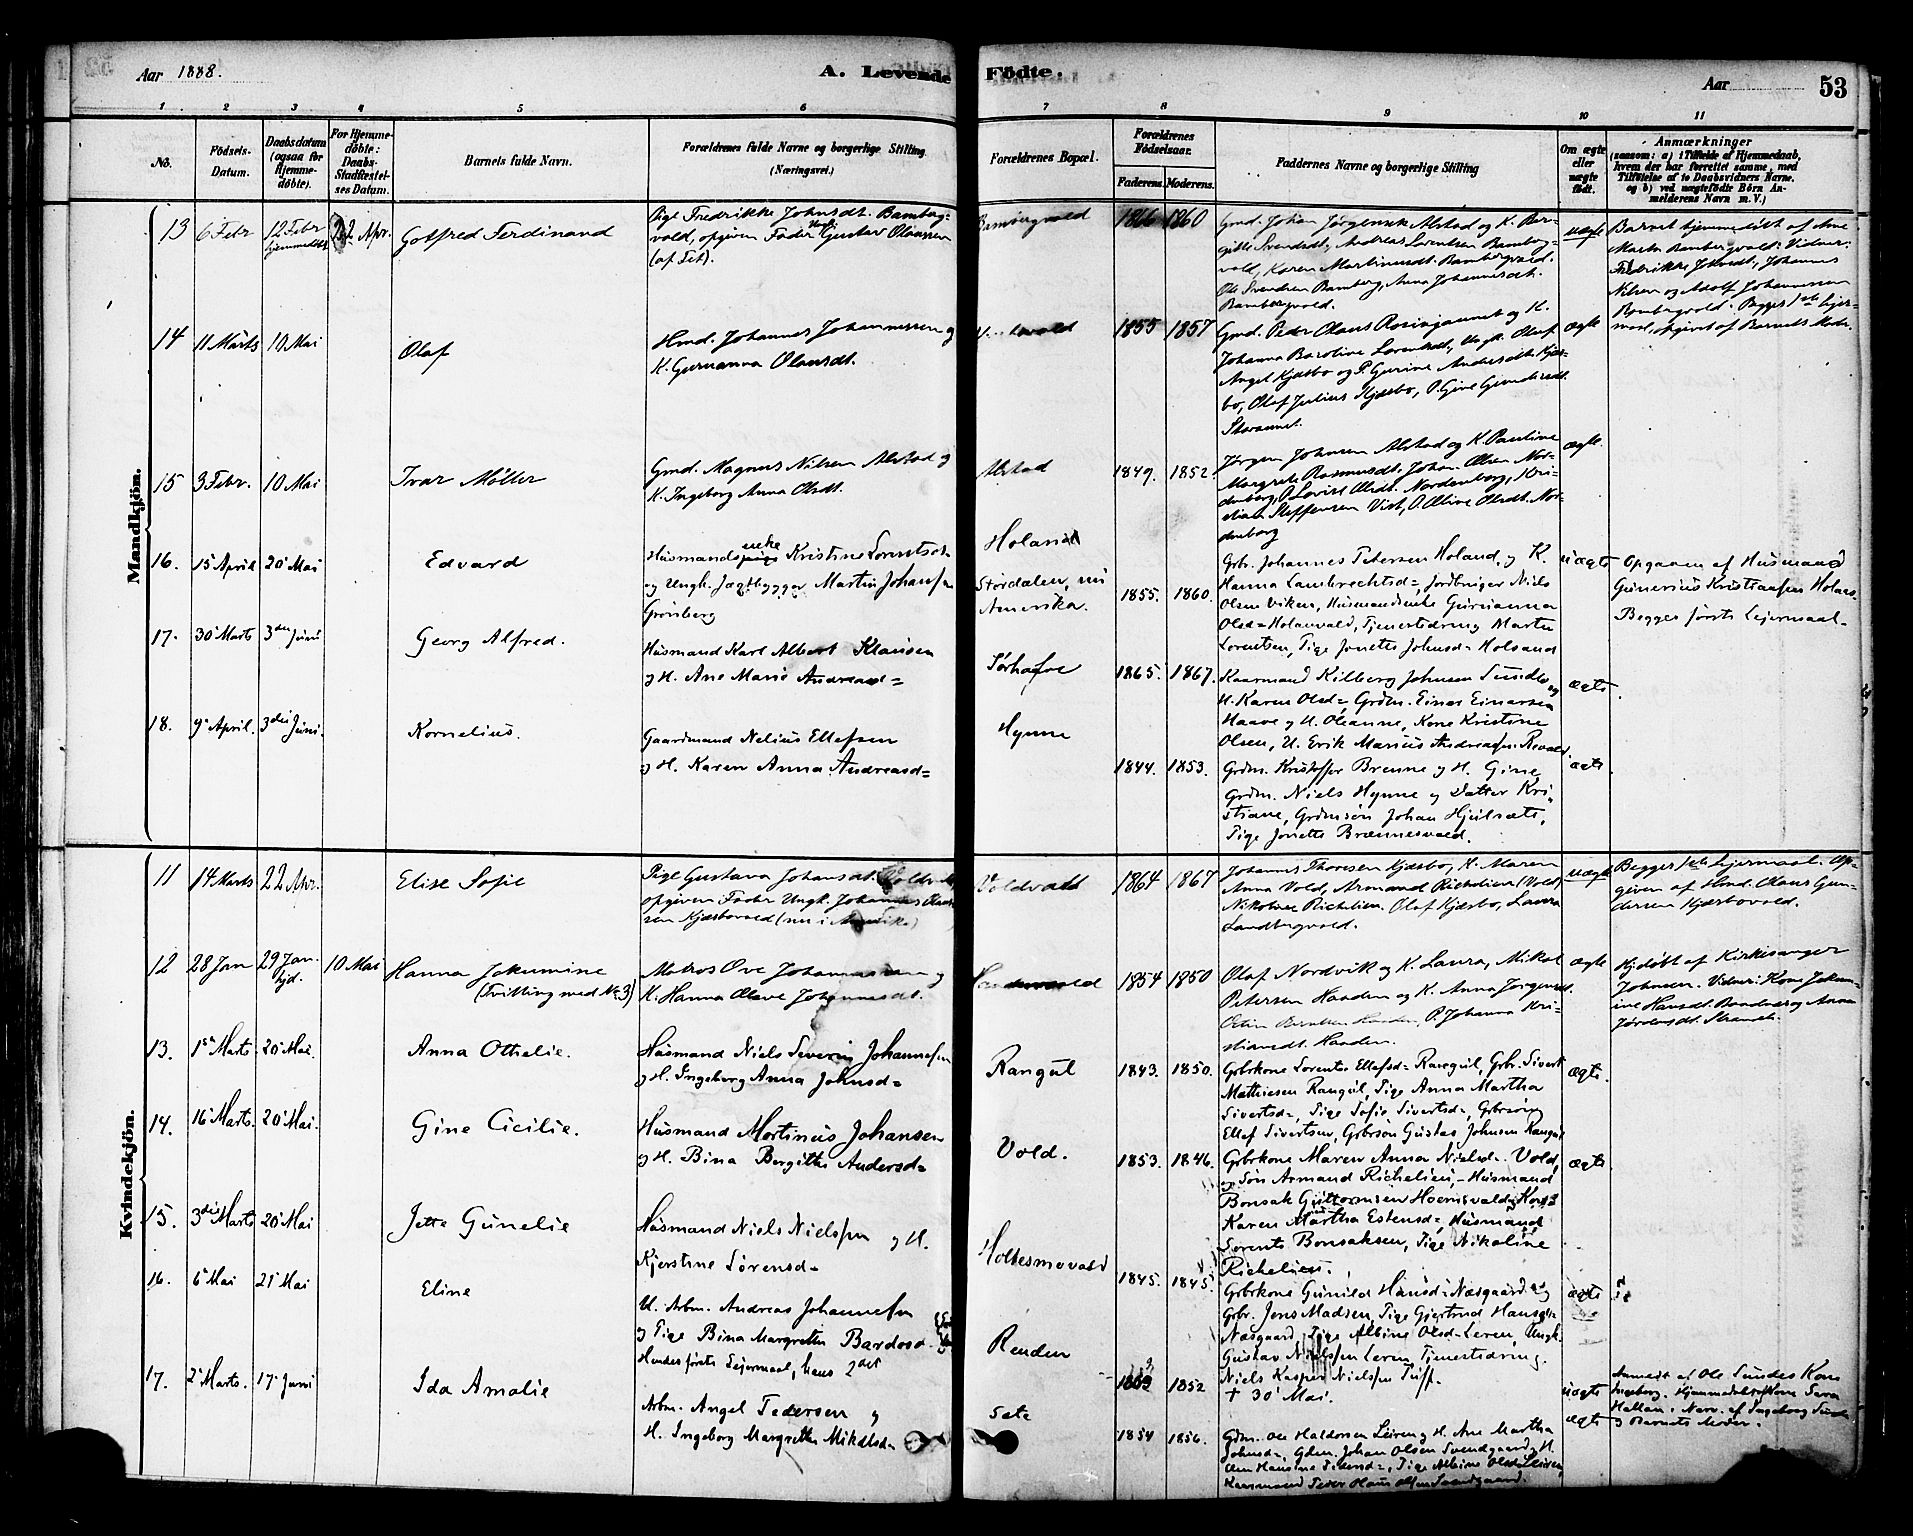 Aar 1888.
A. Levende Fødte.
Aar
53
1 2 3 4 5 6 7 8 9 10 11
No.
Fødsels-Datum.
Daabsdatum (ogsaa for Hjemmedøbte).
For Hjemmedøbte: Daabs-Stadfæstelses Datum.
Barnets fulde Navn.
Forældrenes fulde Navne og borgerlige Stilling (Næringsvei.)
Forældrenes Bopæl.
Forældrenes Fødselsaar.
Faderens. Moderens.
Faddernes Navne og borgerlige Stilling
Om ægte eller uægte født.
Anmærkninger
(saasom: a) i Tilfælde af Hjemmedaab, hvem der har forrettet samme, med Tilføielse af to Daabsvidners Navne, og b) ved uægtefødte Børn Anmelderens Navn m. V.)
Mandkjøn.
13 6 Febr 12 Febr hjemmedøbt 22 Apr. Gotfred Ferdinand
Pige Fredrikke Johnsdt. Bamberg-
vold, opgiven Fader Ungk. Gustav Olaussen
Bambergvold 1866 1860
Gmd. Johan Jørgensen Alstad og K. Ber-
gitte Svendsdt, Andreas Lorentsen Bamberg-
vold, Karen Martinusdt. Bambergvold.
Ole Svendsen Bamberg, Anna Johannesdt.
Bambergvold.
uægte
Barnet hjemmedøbt af Ane
Marta Bambergvold. Vidner:
Fredrikke Johnsdt, Johannes
Nilsen og Adolf Johannessen
Bambergvold. Begges 1ste Leier-
maal, opgivet af Barnets Moder.
14 11 Marts 10 Mai Olaf
Hmd. Johannes Johannessen og
K. Gurianna Olausdt.
1855 1857
Gmd. Peder Olaus Rosingaunet og K.
Johanna Baroline Lorentsdt, Ungk. Olaus
Angel Kjæsbo og P. Gurine Andersdt. Kjæs-
bo, Olaf Julius Kjæsbo, P. Gine Gundersdt.
ægte
15 3 Febr. 10 Mai Ivar Møller
Gmd. Magnus Nilsen Alstad og
K. Ingeborg Anna Olsdt.
Alstad 1849. 1852.
Jørgen Johnsen Alstad og K. Pauline
Margrete Rasmusdt. Johan Olsen Nor-
denborg, P. Lovise Olsdt. Nordenborg, Kri-
stian Steffensen Vist, P. Oline Olsdt. Nor-
denborg
ægte.
16. 15 April 20 Mai Edvard
Husmandsenke Kristine Lorentsdt.
og Ungk. Jægtbygger Martin Johansen
Grønberg
Holand
Størdalen, nu
Amerika.
1855. 1860.
Grbr. Johannes Petersen Holand, og K.
Hanna Lambrechtsd=, Jordbruger Niels
Olsen Viken, Husmandsenke Gurianna
Olsd= Holanvald, Tjenestedreng Martin
Lorentsen, Pige Jonette Johnsd= Holsand
uægte
Opgaaen af Husmand
Gunerius Kristiansen Holan.
Begges første Leiermaal.
17. 30 Marts 3die Juni Georg Alfred.
Husmand Karl Albert Klausen
og H. Ane Marie Andreasd=
Sørhafoe 1865. 1867.
Kaarmand Kilberg Johnsen Sundby og
H. Karen Olsd=, Grdm. Einar Einarsen
Haave og H. Oleanne, Kone Kristine
Olsen, U. Erik Marius
ægte
18. 9 April. 3die Juni. Kornelius.
Gaardmand Nelius Ellefsen
og H. Karen Anna Andreasd=
Hynne 1844. 1853.
Grdm. Kristoffer Brenne og H. Gine,
Grdm. Niels Hynne og Datter Kri-
stiane, Grdmsøn Johan Hjulsæte,
Pige Jonette Brænnesvald.
ægte
Kvindekjøn.
11 14 Marts 22 Apr. Elise Sofie
Pige Gustava Johansdt.
opgiven Fader Ungk. Johannes
Kjæsbovold (nu i Amerika)
Voldvald 1864 1867
Johannes Thoresen Kjæsbo, K. Maren
Anna Vold, Armand Richelieu (Vold)
Nikoline Richelieu. Olaf Kjæsbo, Laura
Landbergvold.
uægte
Begges 1ste Leiermaal. Op-
given af Hmd. Olaus Gun-
dersen Kjæsbovold.
12 28 Jan 29 Jan. hjd. 10 Mai Hanna Jokumine
(Tvilling med No 3)
Matros Ove Johannessen og
K. Hanna Olave Johannesdt.
1854 1850
Olaf Nordvik og K. Laura, Mikal
Petersen Haaden og K. Anna Jørgensdt.
P. Johanna Kri-
stiansdt. Haaden.
ægte
Hjdøbt af Kirkesanger
Johnsen. Vidner: Kone Jokum-
ine Hansdt. og Anna
13. 1ste Marts. 20 Mai. Anna Othelie.
Husmand Niels Severin Johannesen
og H. Ingeborg Anna Johnsd=
Rangul 1843. 1850.
Grbrkone Lorentse Ellefsd= Rangul, Grbr. Sivert
Mathiesen Rangul, Pige Anna Martha
Sivertsd=, Pige Sofie Sivertsd=, Grbrsøn
Ellef Sivertsen, Grbrsøn Gustav Johnsen Rangul
ægte.
14. 16 Marts. 20 Mai. Gine Cicilie.
Husmand Martinus Johansen
og H. Bina Bergitte Andersd=
Vold. 1853. 1846.
Grbrkone Maren Anna Nielsd= Vold,
og Søn Armand Richelieu,- Husmand
Bonsak Guttormsen Hoemsvald, Kone
Karen Martha Estensd=, Husmand
Lorents Bonsaksen, Pige Nikoline
Richelieu.
ægte
15. 3die Marts 20 Mai Jette Gunelie
Husmand Niels Nielsen og H.
Kjerstine Sørensd=
Holtesmovald 1845. 1845.
Grbrkone Gunild Hansd= Næsgaard og
Grbr. Jens Madsen, Pige Gjertrud Hansd=
Næsgaard, Pige Albine Olsd= Leren, Ungk.
Gustav Nielsen Leren, Tjenestedreng
Niels Kasper Nielsen
† 30 Mai.
ægte
16. 6 Mai 21 Mai Eline
U. Arbm. Andreas Johannesen
og Pige Bina Margrethe Bardosd.
Hendes første Leiermaal, hans 2det
Renden 1852
uægte
Anmeldt af Ole Sundes Kone
Ingeborg. Hjemmedøbt af Kone Sara
Hallan. Nærv. af Ingeborg Sunde
og Barnets Moder.
17. 2 Marts. 17 Juni Ida Amalie
Arbm. Angel Pedersen og
H. Ingeborg Margrethe Mikalsd=
Sæte 1854 1856.
Gdm. Ole Haldorsen Leiren og H. Ane Martha
Johnsd=, Gdm. Johan Olsen Svendgaard og H.
Pige Albine Olsd= Leiren,
ægte